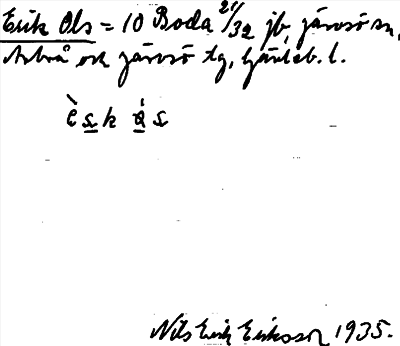 Erik Ols = 10 Boda 21/32 jb, järvsö sn,
Arbrå och järvsö tg, Gävleb. l.
è s k á s
Nils Erik Eriksson 1935.